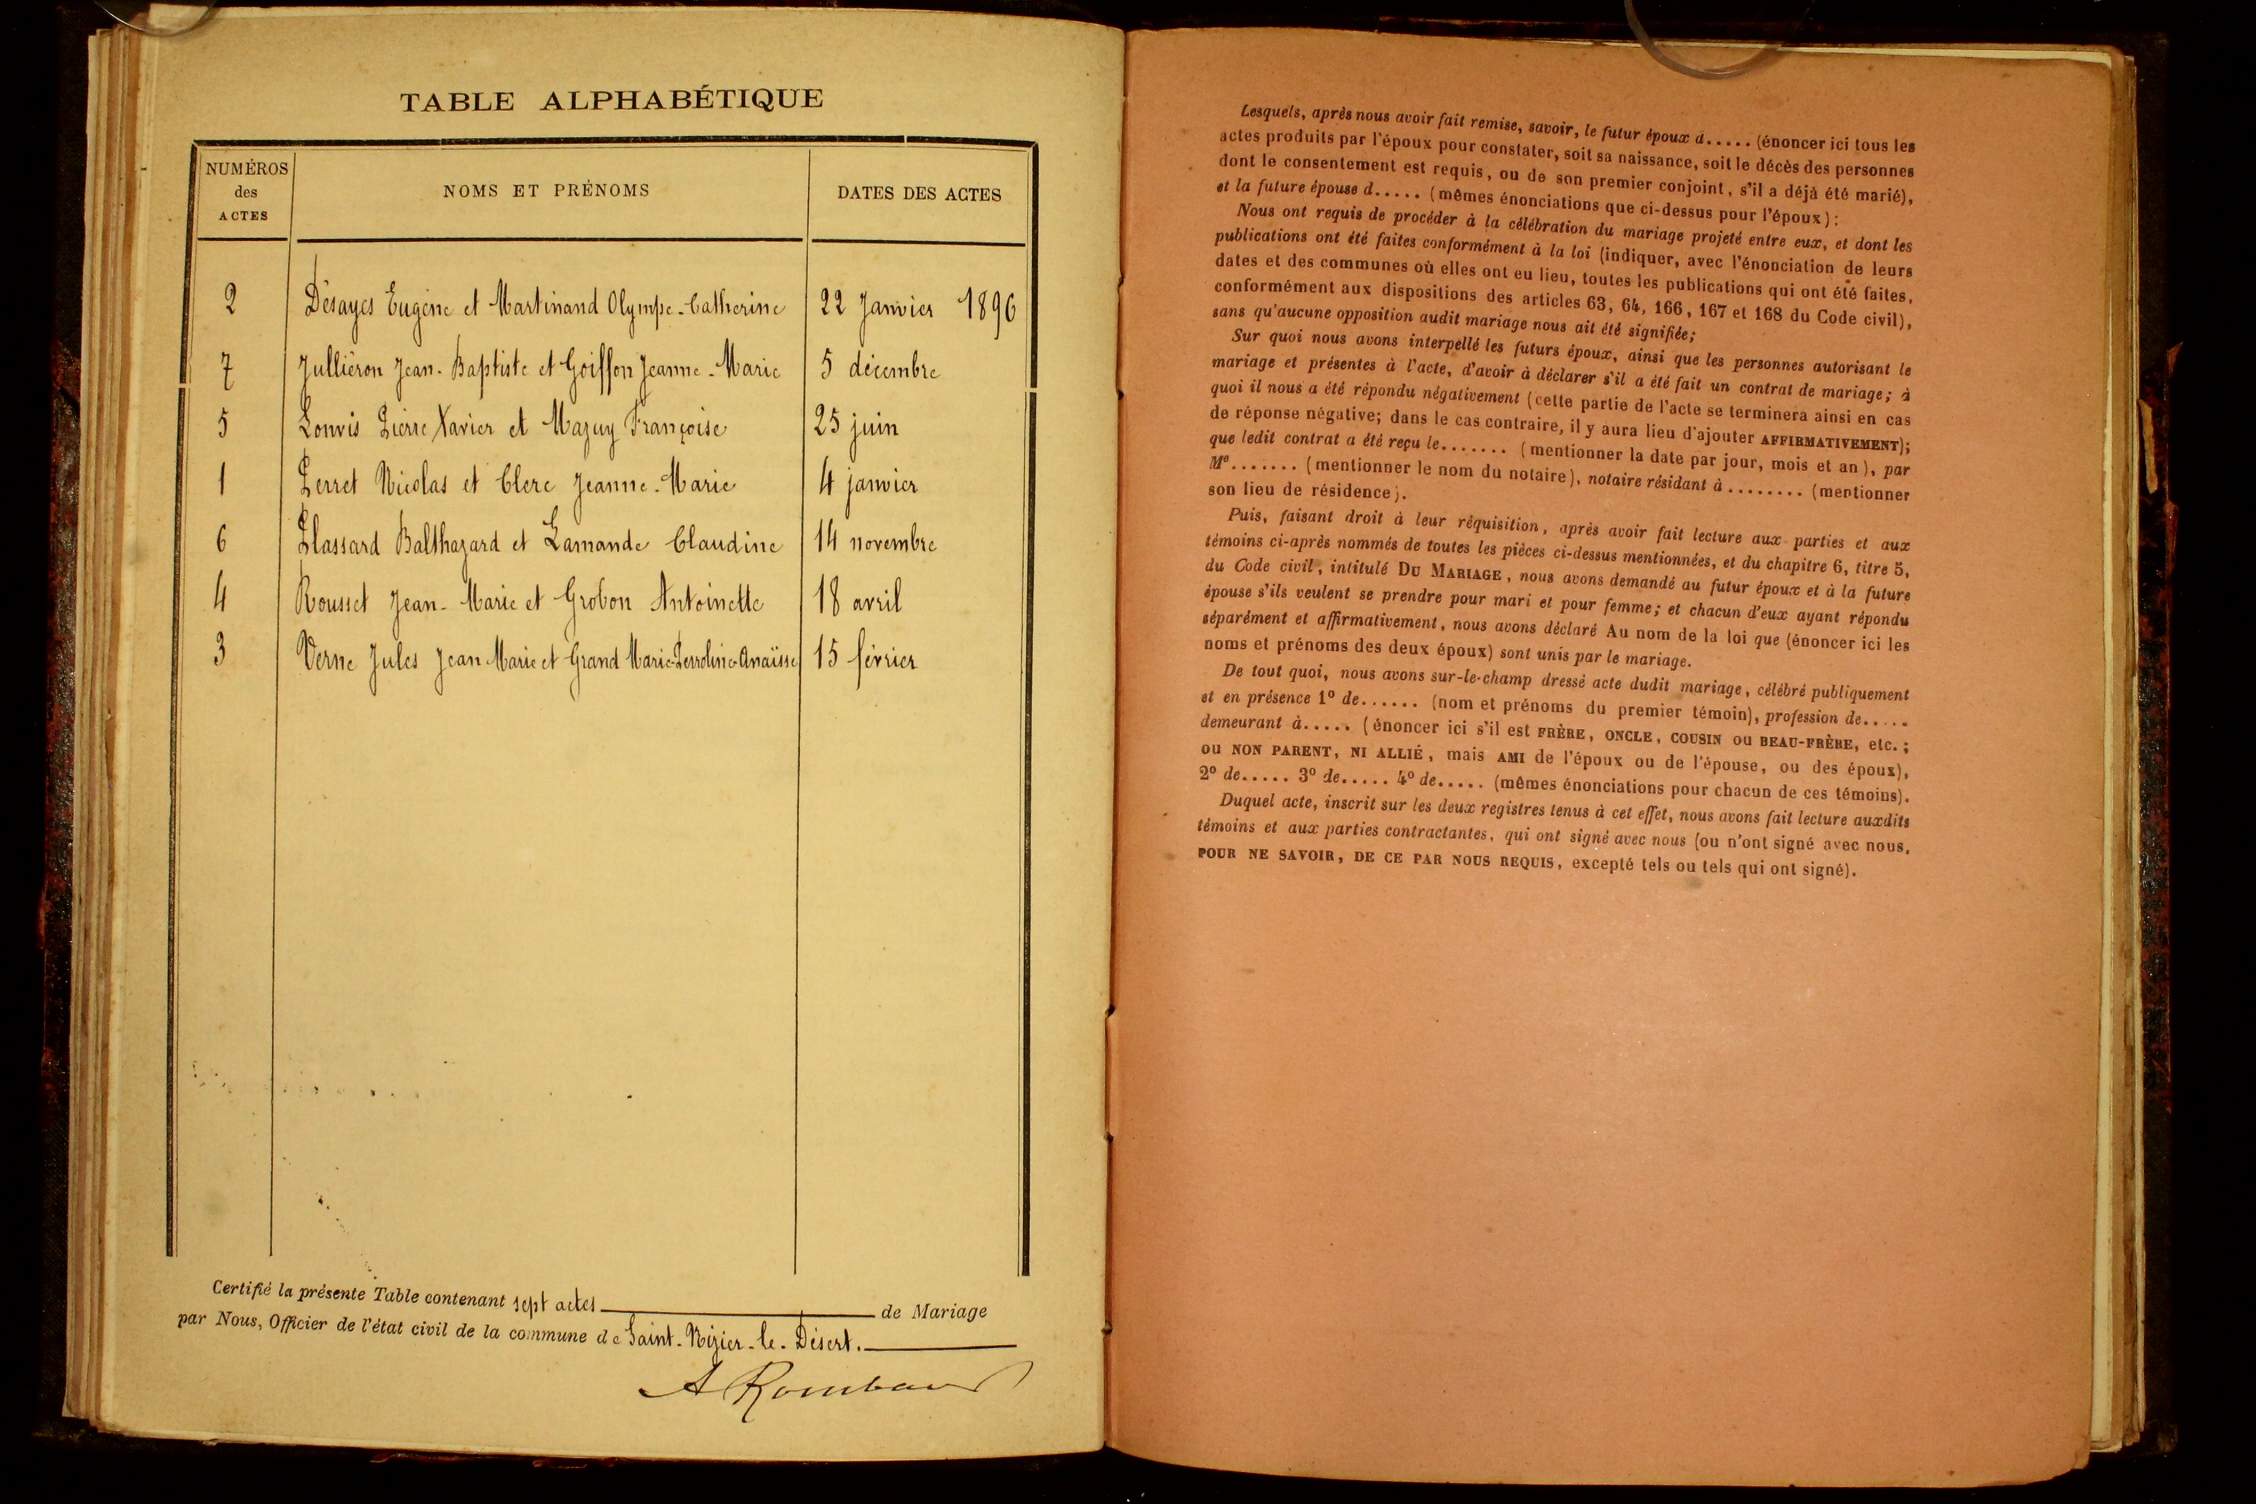 TABLE ALPHABÉTIQUE
NUMÉROS des ACTES NOMS ET PRÉNOMS DATES DES ACTES
2 Désayes Eugène et Martinand Olympe-Catherine 22 Janvier 1896
7 Julliéron Jean-Baptiste et Goiffon Jeanne-Marie 5 décembre
5 Louvis Pierre Xavier et Mazuy Françoise 25 juin
1 Perret Nicolas et Clerc Jeanne-Marie 4 janvier
6 Plassard Balthazard et Lamande Claudine 14 novembre
4 Rousset Jean-Marie et Grobon Antoinette 18 avril
3 Verne Jules Jean Marie et Grand Marie-Perroline-Anaïsse 15 février
Certifié la présente Table contenant sept actes de Mariage
par Nous, Officier de l'état civil de la commune de Saint-Nizier-le-Désert.
A Rombau
Lesquels, après nous avoir fait remise, savoir, le futur époux d..... (énoncer ici tous les
actes produits par l'époux pour constater, soit sa naissance, soit le décès des personnes
dont le consentement est requis, ou de son premier conjoint, s'il a déjà été marié),
et la future épouse d..... (mêmes énonciations que ci-dessus pour l'époux):
Nous ont requis de procéder à la célébration du mariage projeté entre eux, et dont les
publications ont été faites conformément à la loi (indiquer, avec l'énonciation de leurs
dates et des communes où elles ont eu lieu, toutes les publications qui ont été faites,
conformément aux dispositions des articles 63, 64, 166, 167 et 168 du Code civil),
sans qu'aucune opposition audit mariage nous ait été signifiée;
Sur quoi nous avons interpellé les futurs époux, ainsi que les personnes autorisant le
mariage et présentes à l'acte, d'avoir à déclarer s'il a été fait un contrat de mariage; à
quoi il nous a été répondu négativement (cette partie de l'acte se terminera ainsi en cas
de réponse négative; dans le cas contraire, il y aura lieu d'ajouter AFFIRMATIVEMENT);
que ledit contrat a été reçu le....... (mentionner la date par jour, mois et an), par
Me....... (mentionner le nom du notaire), notaire résidant à ........ (mentionner
son lieu de résidence).
Puis, faisant droit à leur réquisition, après avoir fait lecture aux parties et aux
témoins ci-après nommés de toutes les pièces ci-dessus mentionnées, et du chapitre 6, titre 5,
du Code civil, intitulé DU MARIAGE, nous avons demandé au futur époux et à la future
épouse s'ils veulent se prendre pour mari et pour femme; et chacun d'eux ayant répondu
séparément et affirmativement, nous avons déclaré Au nom de la loi que (énoncer ici les
noms et prénoms des deux époux) sont unis par le mariage.
De tout quoi, nous avons sur-le-champ dressé acte dudit mariage, célébré publiquement
et en présence 1º de...... (nom et prénoms du premier témoin), profession de.....
demeurant à..... (énoncer ici s'il est FRÈRE, ONCLE, COUSIN ou BEAU-FRÈRE, etc.;
ou NON PARENT, NI ALLIÉ, mais AMI de l'époux ou de l'épouse, ou des époux),
2º de..... 3º de..... 4º de..... (mêmes énonciations pour chacun de ces témoins).
Duquel acte, inscrit sur les deux registres tenus à cet effet, nous avons fait lecture auxdits
témoins et aux parties contractantes, qui ont signé avec nous (ou n'ont signé avec nous,
POUR NE SAVOIR, DE CE PAR NOUS REQUIS, excepté tels ou tels qui ont signé).